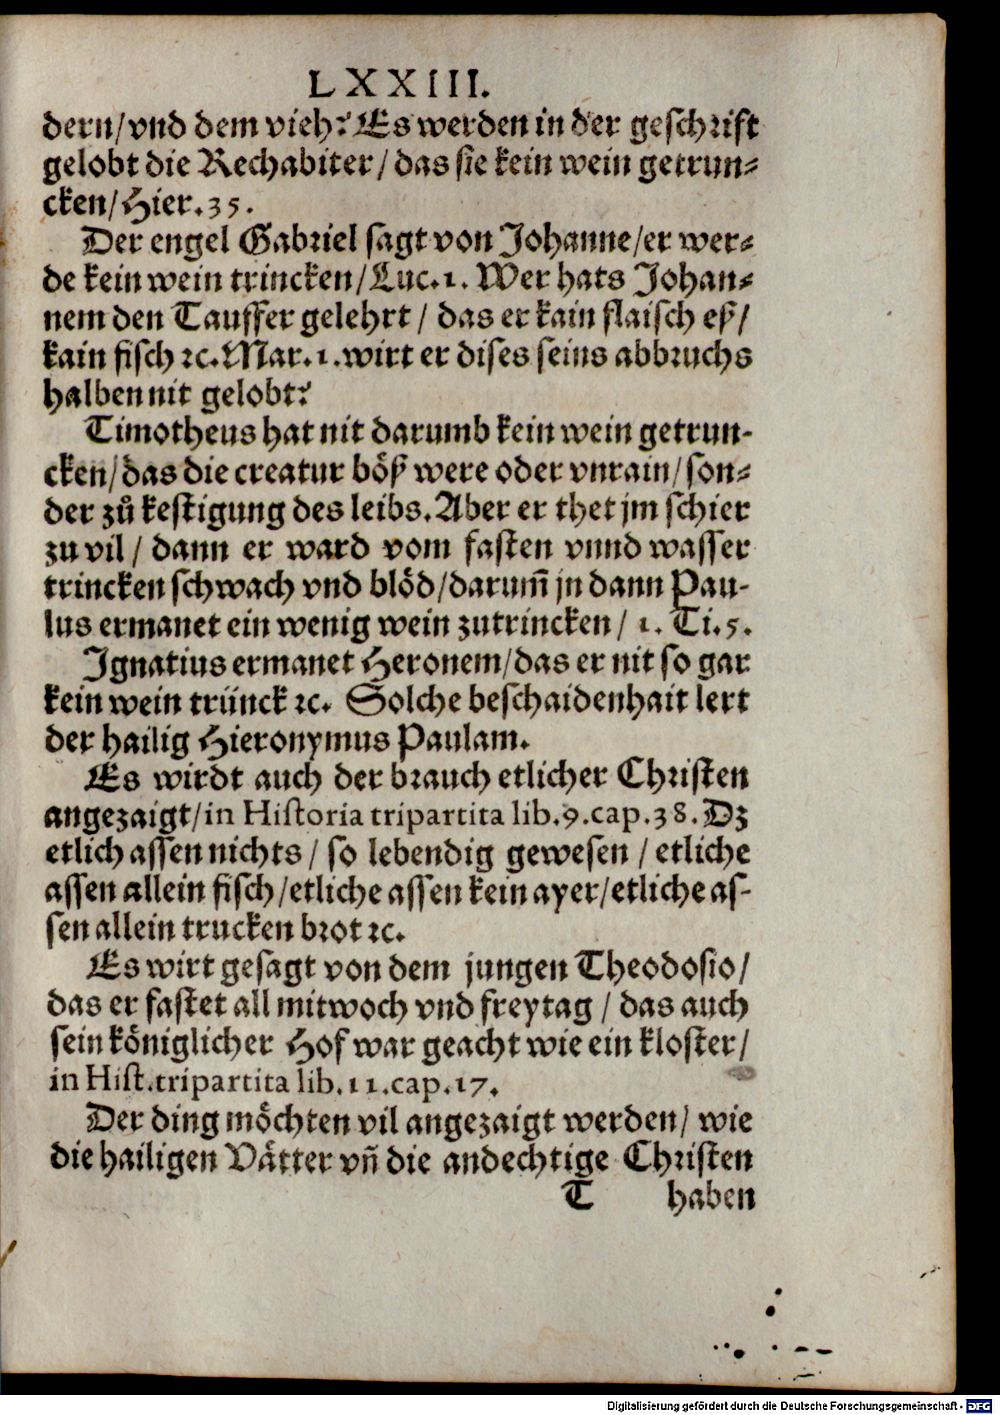 LXXIII.
dern/vnd dem vieh? Es werden in der geschrift
gelobt die Rechabiter/das sie kein wein getrun-
cken/Hier.35.
Der engel Gabriel sagt von Johanne/er wer-
de kein wein trincken/Luc.1. Wer hats Johan-
nem den Tauffer gelehrt/ das er kain flaisch eß/
kain fisch ꝛc. Mar.1.wirt er dises seins abbruchs
halben nit gelobt?
Timotheus hat nit darumb kein wein getrun-
cken/das die creatur böß were oder vnrain/son-
der zuͦ kestigung des leibs. Aber er thet jm schier
zu vil/ dann er ward vom fasten vnnd wasser
trincken schwach vnd blöd/darum̃ jn dann Pau-
lus ermanet ein wenig wein zutrincken/ 1. Ti.5.
Ignatius ermanet Heronem/das er nit so gar
kein wein trünck ꝛc. Solche beschaidenhait lert
der hailig Hieronymus Paulam.
Es wirdt auch der brauch etlicher Christen
angezaigt/in Historia tripartita lib.9.cap.38. Dz
etlich assen nichts/ so lebendig gewesen/etliche
assen allein fisch/etliche assen kein ayer/etliche as-
sen allein trucken brot ꝛc.
Es wirt gesagt von dem jungen Theodosio/
das er fastet all mitwoch vnd freytag/ das auch
sein königlicher Hof war geacht wie ein kloster/
in Hist.tripartita lib.11.cap.17.
Der ding möchten vil angezaigt werden/ wie
die hailigen Vätter vñ die andechtige Christen
T haben
Digitalisierung gefördert durch die Deutsche Forschungsgemeinschaft - DFG